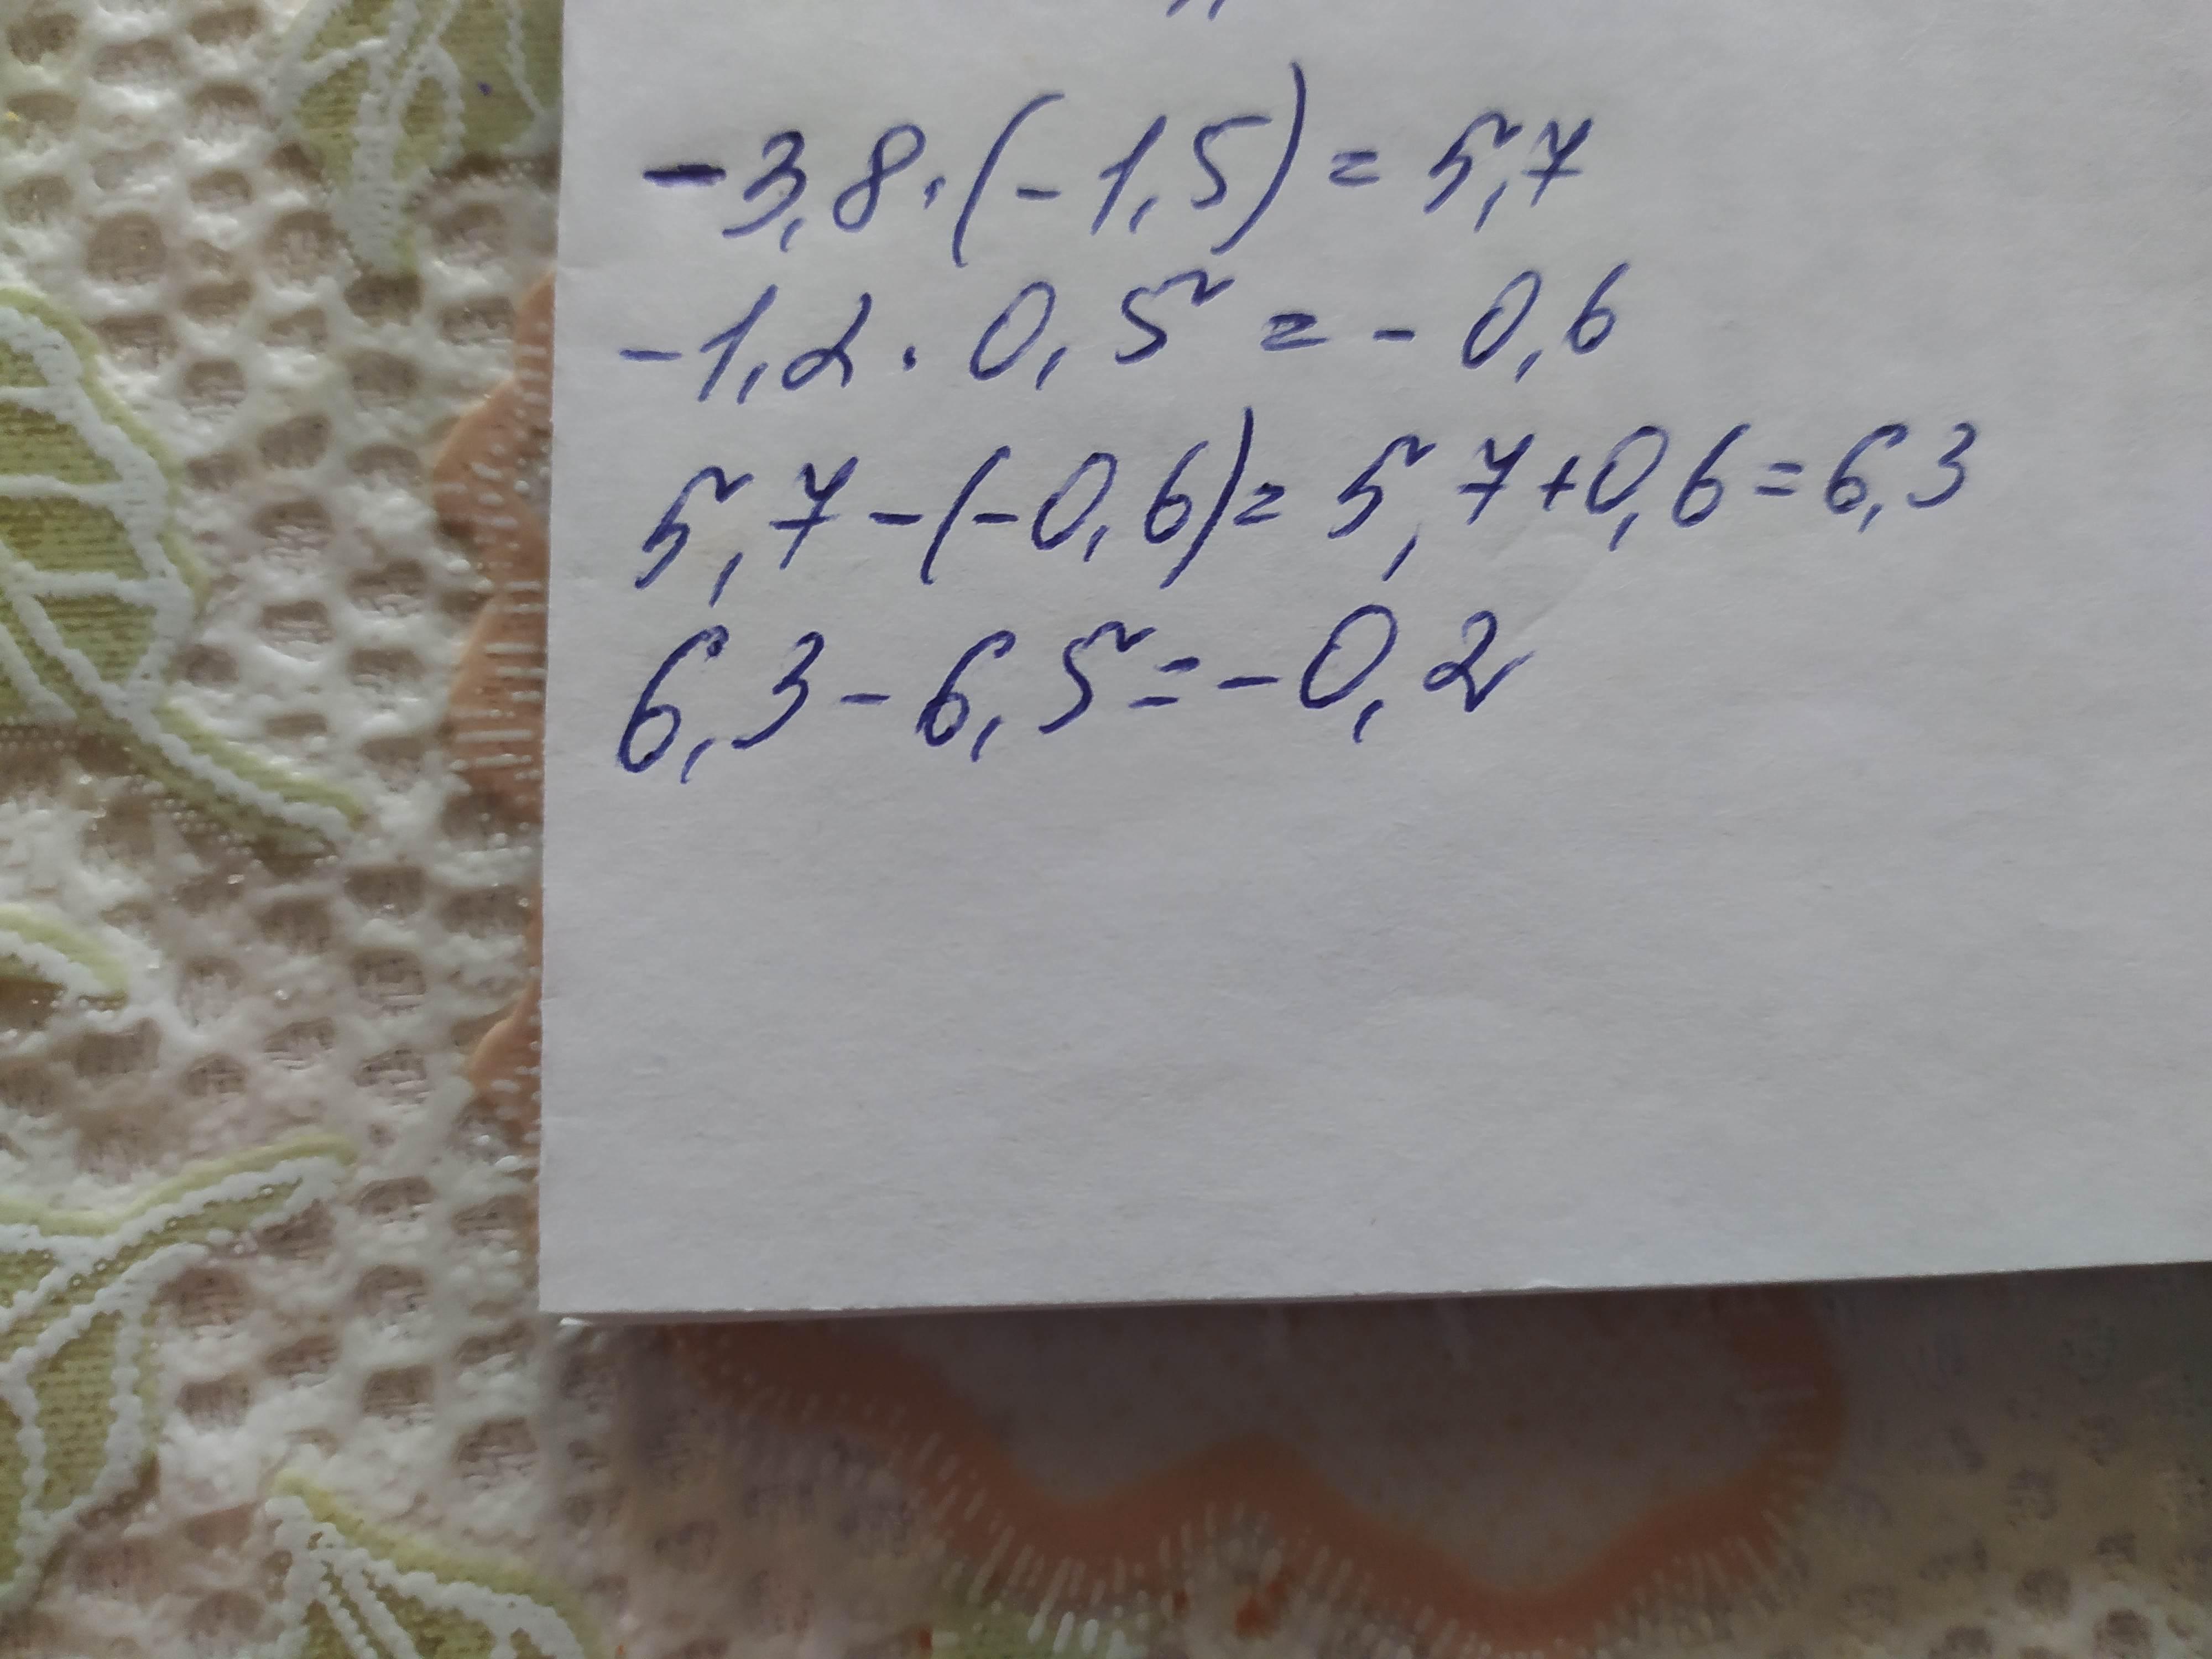 -3,8·(-1,5)=5,7
-1,2·0,5=-0,6
5,7-(-0,6)=5,7+0,6=6,3
6,3-6,5=-0,2